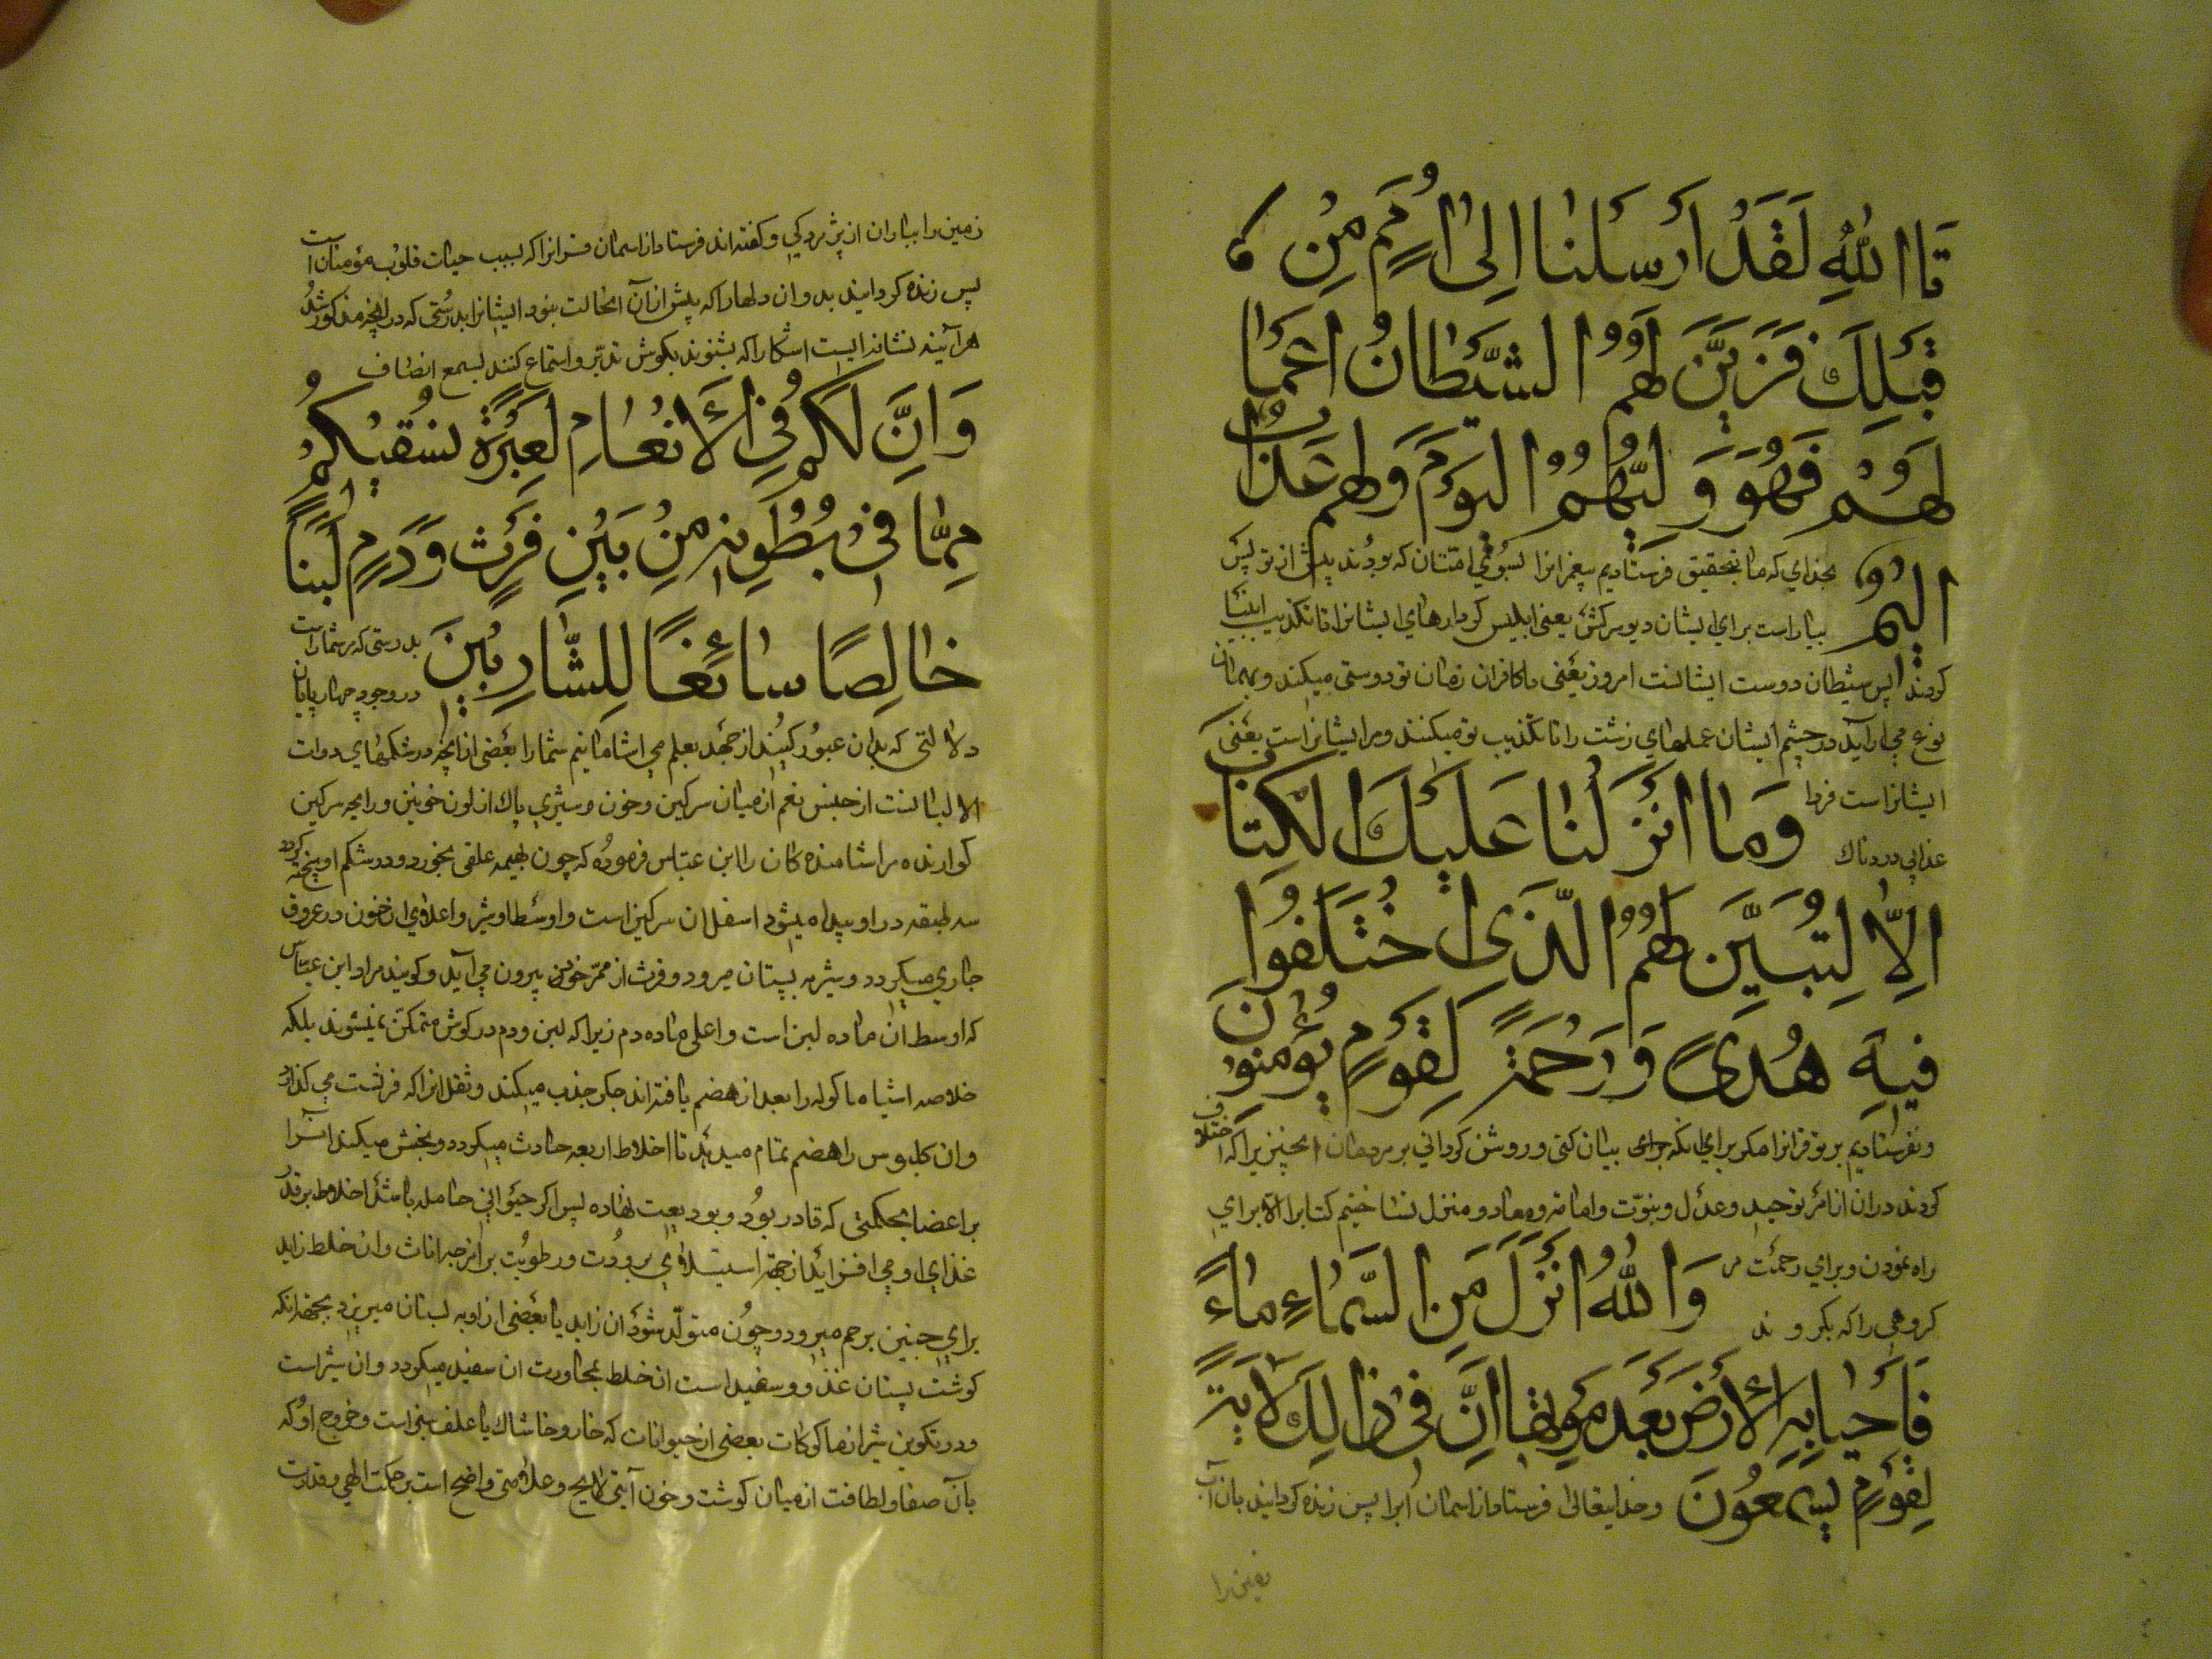 تَا اللّٰهِ لَقَدْ اَرْسَلْنٰا اِلیٰ اُمَمٍ مِنْ
قَبْلِكَ فَزَيَّنَ لَهُمُ الشَّيْطٰانُ اَعْمٰا
لَهُمْ فَهُوَ وَلِيُّهُمُ الْيَوْمَ وَلَهُمْ عَذٰابٌ
اَلِيْمٌ بخداي كه ما بتحقيق فرستاديم پيغمبرانرا بسوي امتان كه بودند پيش از تو پس
بياراست براي ايشان ديو سركش يعني ابليس كردارهاي ايشانرا تا تكذيب انبيا
كردند پس شيطان دوست ايشانست امروز يعني با كافران زمان تو دوستي ميكند و بهمان
نوع مي آرايد در چشم ايشان عملهاي زشت را تا تكذيب تو ميكنند و مر ايشانراست يعني
ايشانراست فردا
عذابي دردناك
وَمٰا اَنْزَلْنٰا عَلَيْكَ الْكِتٰابَ
اِلّٰا لِتُبَيِّنَ لَهُمُ الَّذِی اخْتَلَفُوا
فِيهِ هُدیً وَرَحْمَةً لِقَوْمٍ يُؤْمِنُونَ
و نفرستاديم بر تو قرانرا مكر براي انكه براي بيان كني و روشن كرداني بر مردمان انچيزيرا كه اختلاف
كردند دران از امر توحيد و عدل و نبوت و امامة و معاد و منزل نساختيم كتابرا الا براي
راه نمودن و براي رحمت مر
كروهي را كه بكروند
وَاللّٰهُ اَنْزَلَ مِنَ السَّمٰاءِ مٰاءً
فَاَحْيٰا بِهِ الْأَرْضَ بَعْدَ مَوْتِهٰا اِنَّ فِی ذٰالِكَ لَاٰيَةً
لِقَوْمٍ يَسْمَعُونَ و خدايتعالی فرستاد از اسمان ابرا پس زنده كردانيد بان آب
يعني را
زمين را بباران از پژمردكي و كفته اند فرستاد از اسمان قرانرا كه بسبب حيات قلوب مؤمنانست
پس زنده كردانيد بدو ان دلها را كه پيش ازان انحالت بنود ايشانرا بدرستی كه در انچه مذكور شد
هر آئينه نشانه ايست اشكارا كه بشنوند بكوش تدبر و استماع كنند بسمع انصاف
وَاِنَّ لَكُمْ فِی الْأَنْعٰامِ لَعِبْرَةً نُسْقِيكُمْ
مِمّٰا فِی بُطُونِهِ مِنْ بَيْنِ فَرْثٍ وَدَمٍ لَبَنًا
خٰالِصًا سٰائِغًا لِلشّٰارِبِينَ بدرستی كه مر شما راست
در وجود چهار پايان
دلالتی كه بدان عبور كنيد از جهل بعلم می اشامانيم شما را بعضی از انچه در شكمهاي ذوات
الالبانست از جنس نعم از ميان سركين و خون و شيري پاك از لون خونين و رايحه سركين
كوارنده مر اشامنده كان را ابن عباس فرموده كه چون بهيمه علفی بخورد و در شكم او پخته كردد
سه طبقه در او پيدا ميشود اسفل ان سركين است و اوسط او شير و اعلاي ان خون در عروق
جاري ميكردد و شير به پستان ميرود و فرث از ممر خود بيرون مي آيد و كويند مراد ابن عباس
كه اوسط ان ماده لبن است و اعلی ماده دم زيرا كه لبن و دم در كرش متمكن نميشوند بلكه
خلاصه اشياء ماكوله را بعد از هضم يافته اند جكر جذب ميكند و ثقل انرا كه فرثست مي كذارد
و ان كلبوس را هضم تمام ميدهد تا اخلاط اربعه حادث ميكردد و بخش ميكند انرا
بر اعضا بحكمتی كه قادر بود و بوديعت نهاده پس اكر حيواني حامله باشد اخلاط بر قدر
غذاي او مي افزايد از جهة استيلاي برودت و رطوبت بر امزجه اناث و ان خلط زايد
براي جنين برحم ميرود و چون متولد شود ان زايد يا بعضی از او به پستان ميريزد بجهة انكه
كوشت پستان غذو و سفيد است ان خلط بمجاورت ان سفيد ميكردد و ان شير است
و در تكوين شير از ماكولات بعضی از حيوانات كه خار و خاشاك يا علف سبز است و خروج او كه
بان صفا و لطافت از ميان كوشت و خون آيتی لايح و علامتی واضح است بر حكمت الهي و قدرت